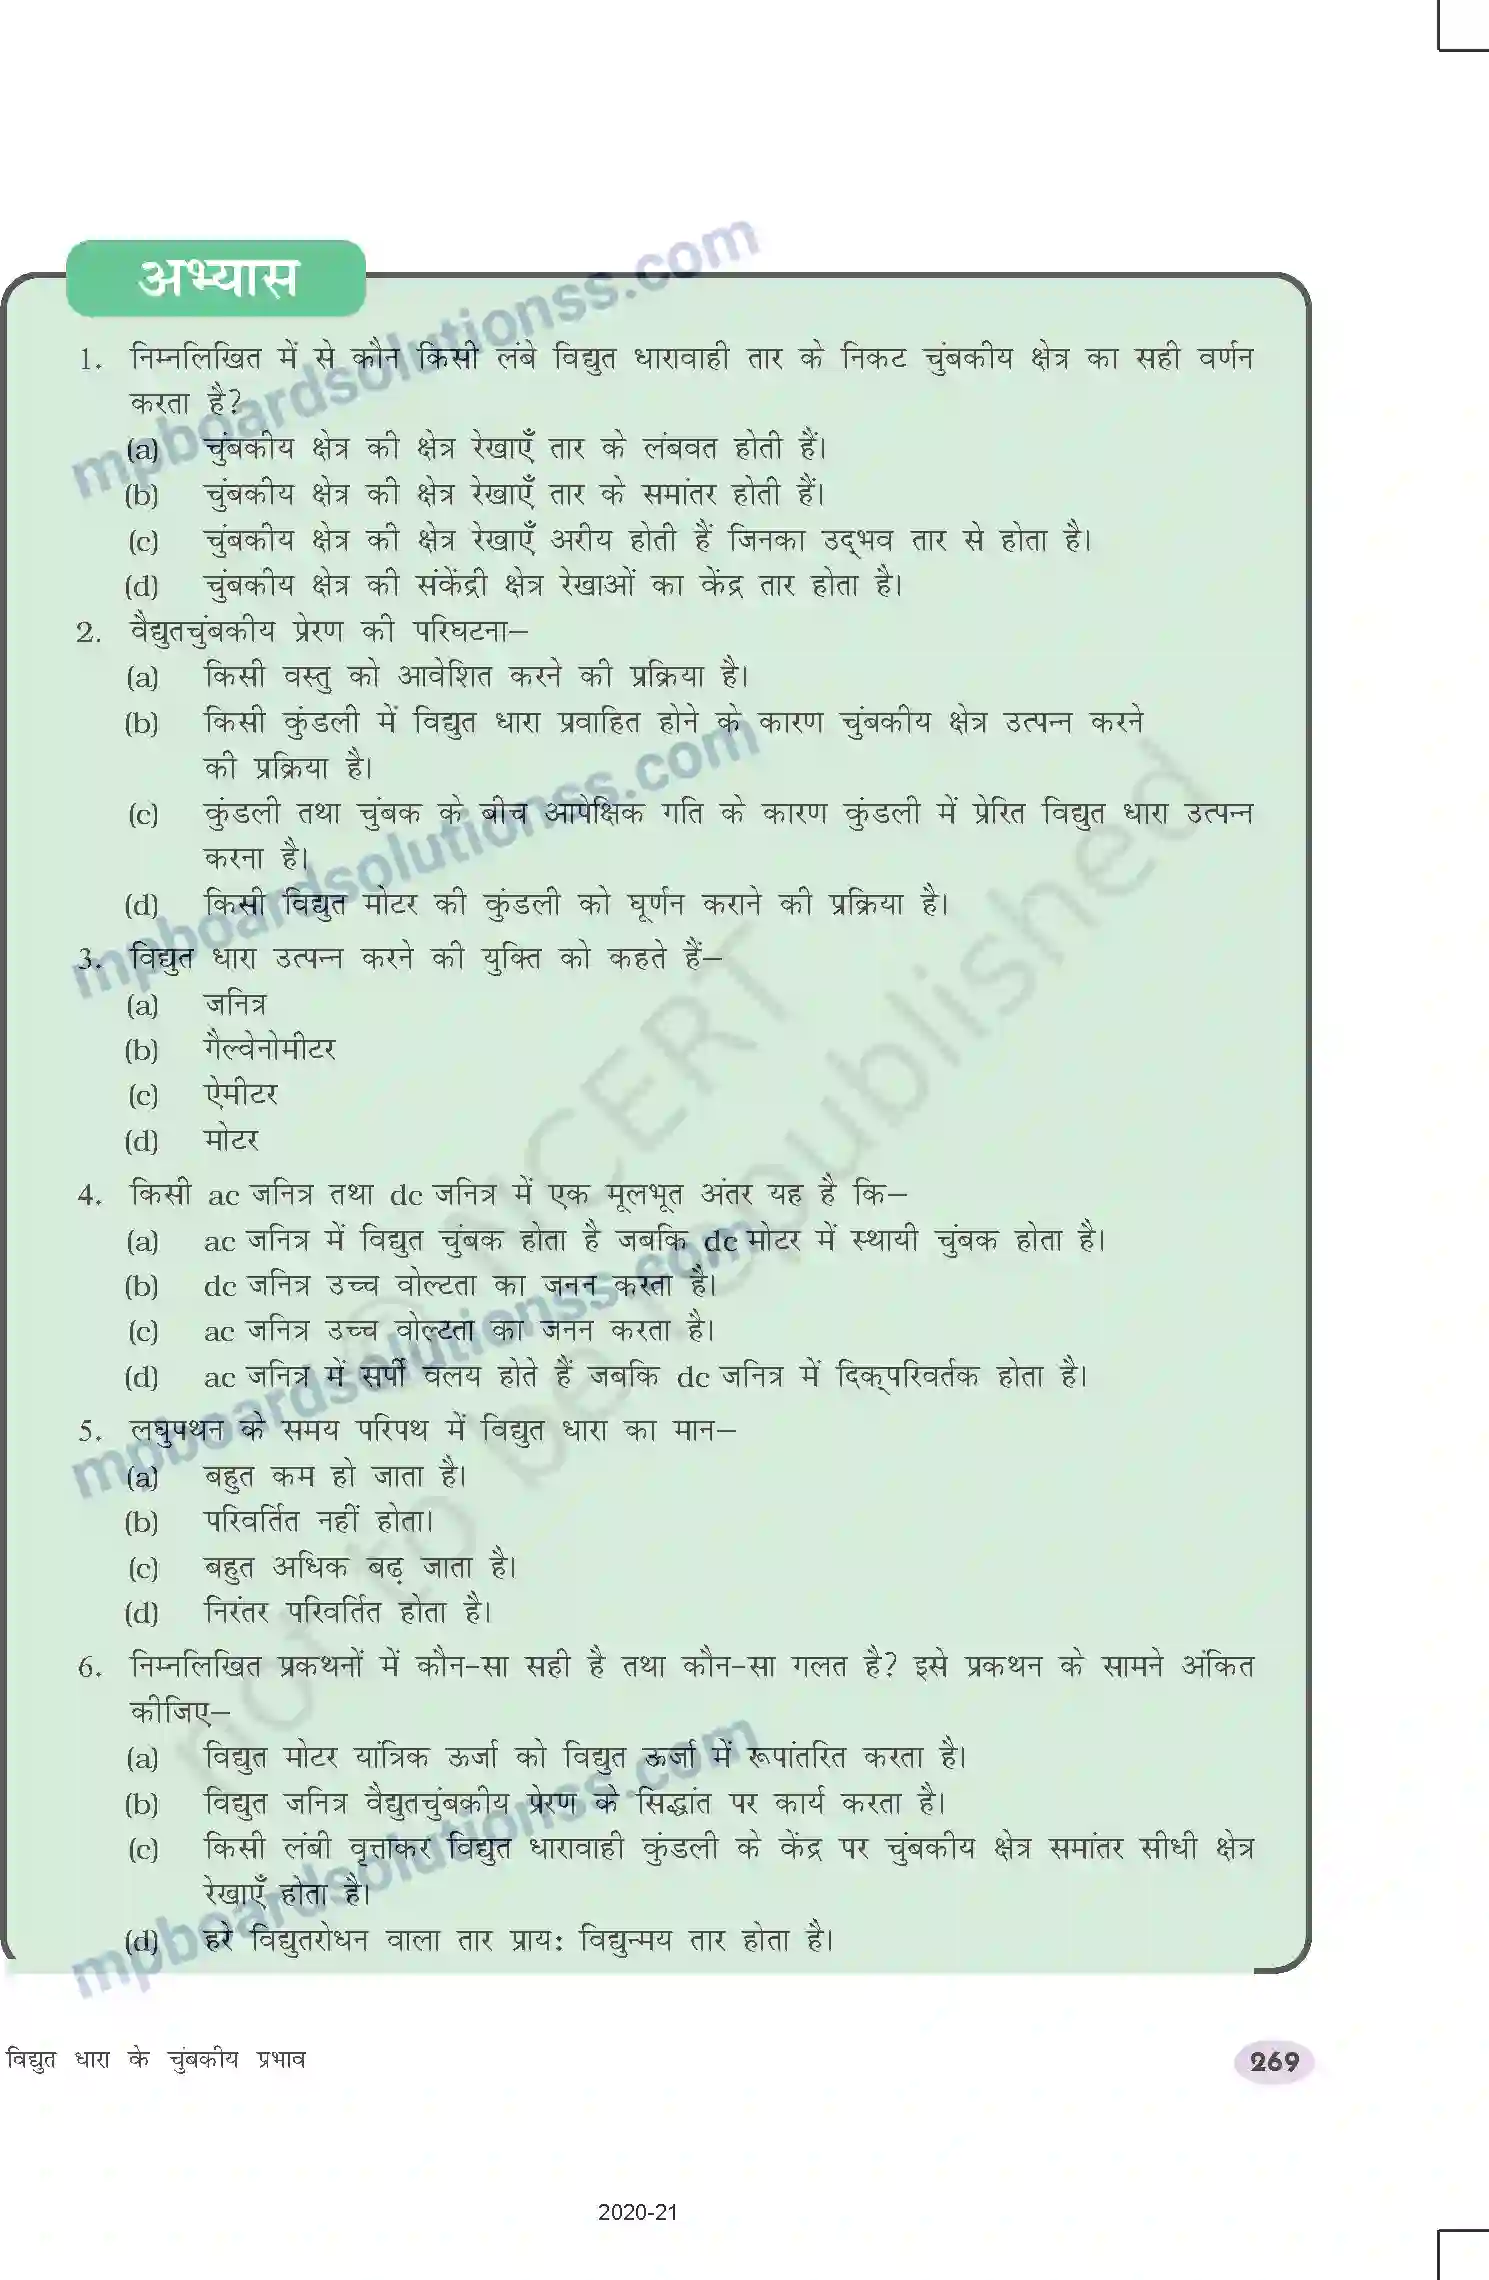 अभ्यास
1. निम्नलिखित में से कौन किसी लंबे विद्युत धारावाही तार के निकट चुंबकीय क्षेत्र का सही वर्णन
करता है?
(a) चुंबकीय क्षेत्र की क्षेत्र रेखाएँ तार के लंबवत होती हैं।
(b) चुंबकीय क्षेत्र की क्षेत्र रेखाएँ तार के समांतर होती हैं।
(c) चुंबकीय क्षेत्र की क्षेत्र रेखाएँ अरीय होती हैं जिनका उद्‌भव तार से होता है।
(d) चुंबकीय क्षेत्र की संकेंद्री क्षेत्र रेखाओं का केंद्र तार होता है।
2. वैद्युतचुंबकीय प्रेरण की परिघटना–
(a) किसी वस्तु को आवेशित करने की प्रक्रिया है।
(b) किसी कुंडली में विद्युत धारा प्रवाहित होने के कारण चुंबकीय क्षेत्र उत्पन्न करने
की प्रक्रिया है।
(c) कुंडली तथा चुंबक के बीच आपेक्षिक गति के कारण कुंडली में प्रेरित विद्युत धारा उत्पन्न
करना है।
(d) किसी विद्युत मोटर की कुंडली को घूर्णन कराने की प्रक्रिया है।
3. विद्युत धारा उत्पन्न करने की युक्ति को कहते हैं–
(a) जनित्र
(b) गैल्वेनोमीटर
(c) ऐमीटर
(d) मोटर
4. किसी ac जनित्र तथा dc जनित्र में एक मूलभूत अंतर यह है कि–
(a) ac जनित्र में विद्युत चुंबक होता है जबकि dc मोटर में स्थायी चुंबक होता है।
(b) dc जनित्र उच्च वोल्टता का जनन करता है।
(c) ac जनित्र उच्च वोल्टता का जनन करता है।
(d) ac जनित्र में सर्पी वलय होते हैं जबकि dc जनित्र में दिक्‌परिवर्तक होता है।
5. लघुपथन के समय परिपथ में विद्युत धारा का मान–
(a) बहुत कम हो जाता है।
(b) परिवर्तित नहीं होता।
(c) बहुत अधिक बढ़ जाता है।
(d) निरंतर परिवर्तित होता है।
6. निम्नलिखित प्रकथनों में कौन-सा सही है तथा कौन-सा गलत है? इसे प्रकथन के सामने अंकित
कीजिए–
(a) विद्युत मोटर यांत्रिक ऊर्जा को विद्युत ऊर्जा में रूपांतरित करता है।
(b) विद्युत जनित्र वैद्युतचुंबकीय प्रेरण के सिद्धांत पर कार्य करता है।
(c) किसी लंबी वृत्ताकर विद्युत धारावाही कुंडली के केंद्र पर चुंबकीय क्षेत्र समांतर सीधी क्षेत्र
रेखाएँ होता है।
(d) हरे विद्युतरोधन वाला तार प्रायः विद्युन्मय तार होता है।
विद्युत धारा के चुंबकीय प्रभाव
269
2020-21
mpboardsolutionss.com
mpboardsolutionss.com
mpboardsolutionss.com
mpboardsolutionss.com
© NCERT
not to be republished